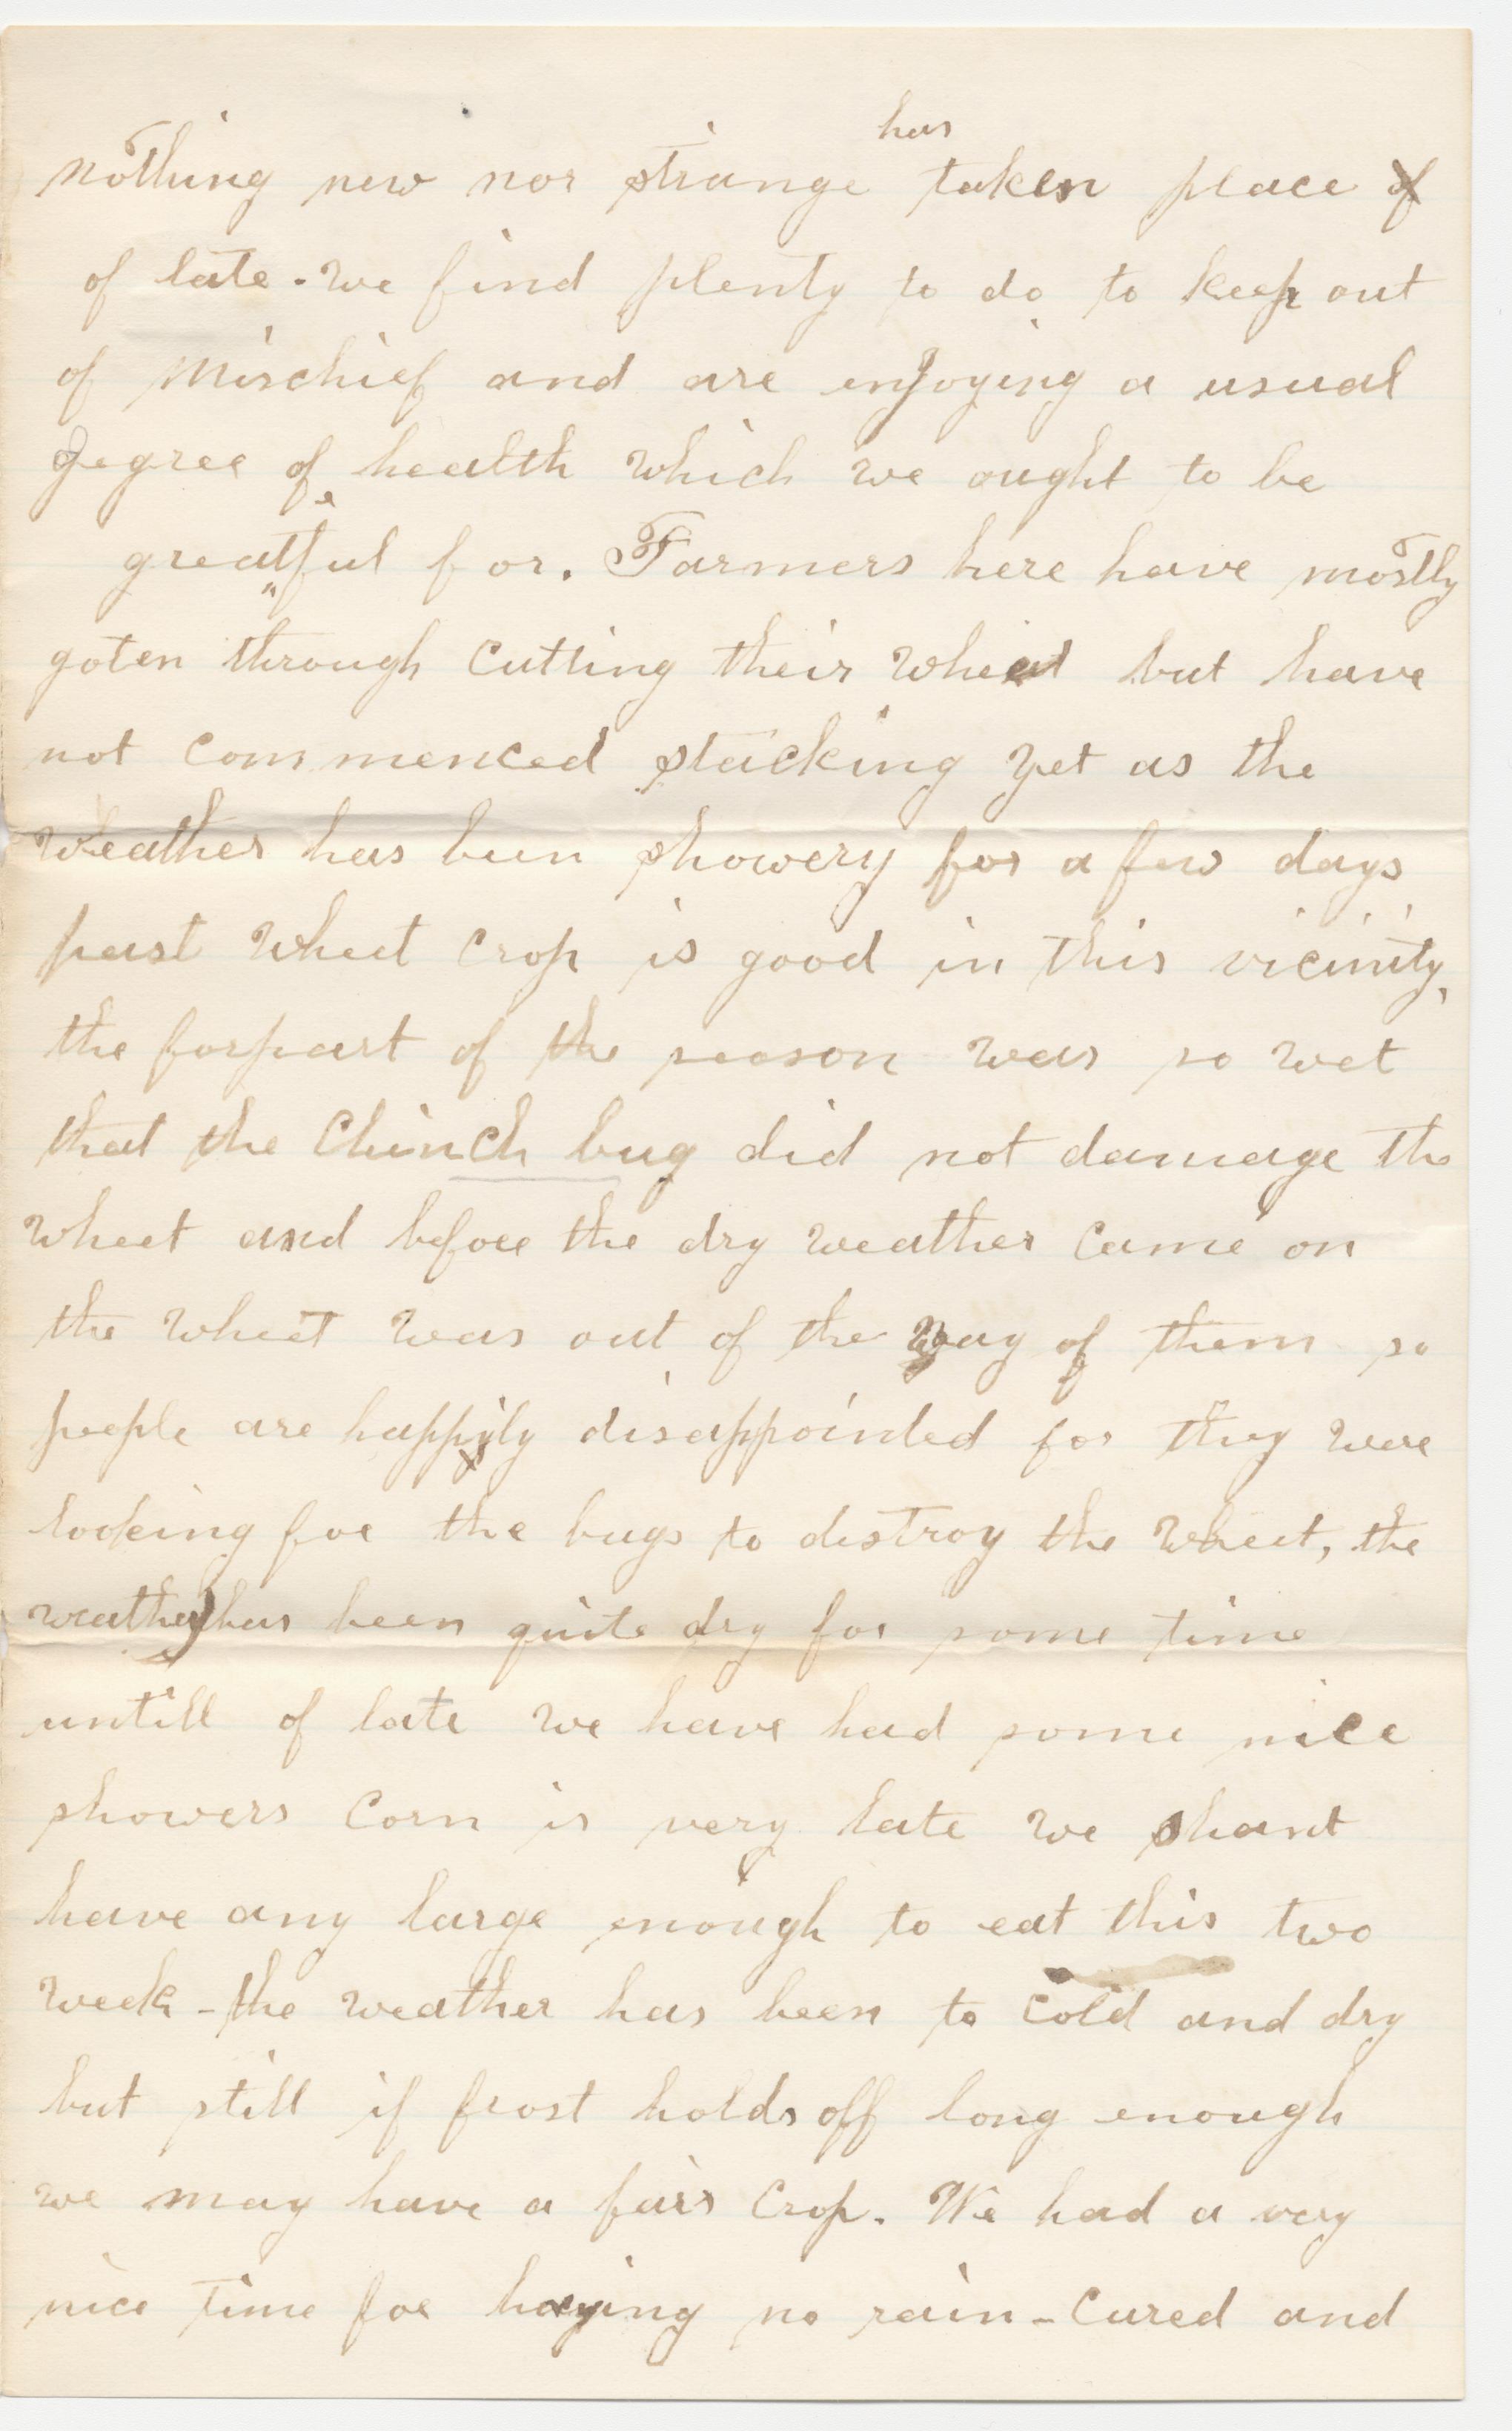 nothing new nor strange has taken place of
of late - we find plenty to do to keep out
of mischief and are enjoying a usual
degree of health which we ought to be
greateful for. Farmers here have mostly
goten through cutting their wheat but have
not commenced stacking yet as the
weather has been showery for a few days
past wheat crop is good in this vicinity,
the forpart of the season was so wet
that the Chinch bug did not damage the
wheat and before the dry weather came on
the wheat was out of the way of them so
people are happily disappointed for they were
looking for the bugs to distroy the wheat, the
weather has been quite dry for some time
untill of late we have had some nice
showers Corn is very late we shant
have any large enough to eat this two
week - the weather has been to cold and dry
but still if frost holds off long enough
we may have a fair crop. We had a very
nice time for haying no rain - cured and